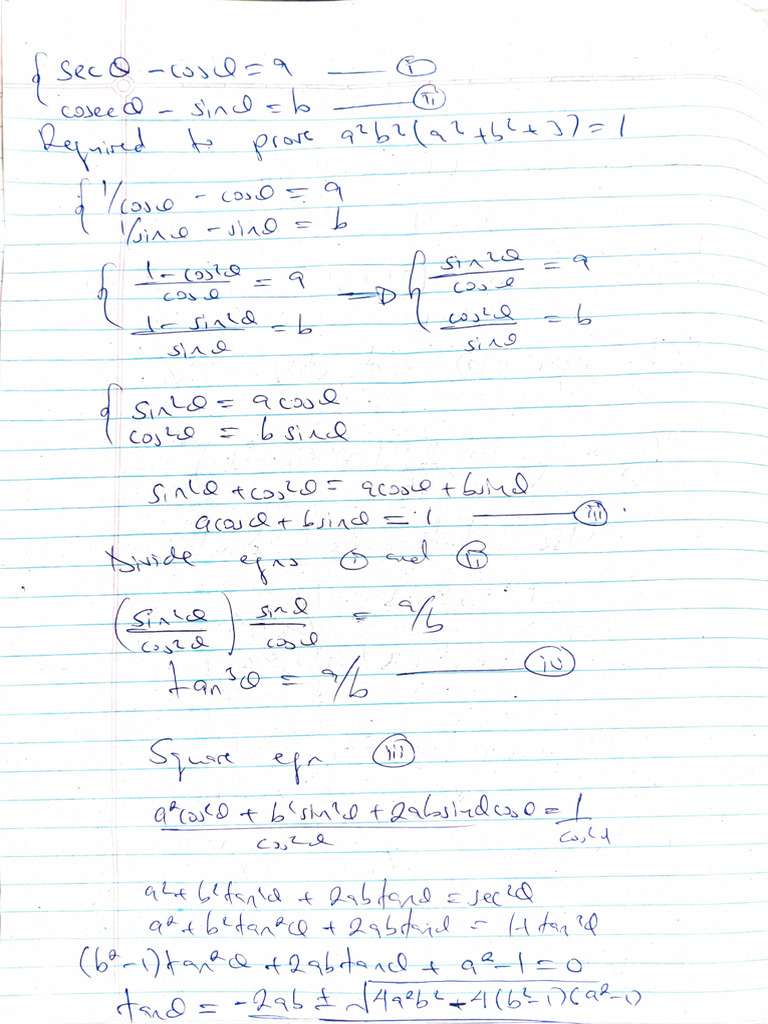 { secθ - cosθ = a —— (i)
{ cosecθ - sinθ = b —— (ii)
Required to prove a²b²(a² + b² + 3) = 1
{ 1/cosθ - cosθ = a
1/sinθ - sinθ = b
{ (1 - cos²θ)/cosθ = a ⇒ { sin²θ/cosθ = a
(1 - sin²θ)/sinθ = b cos²θ/sinθ = b
{ sin²θ = a cosθ
cos²θ = b sinθ
sin²θ + cos²θ = a cosθ + b sinθ
a cosθ + b sinθ = 1 —— (iii)
Divide eqns (i) and (ii)
(sin²θ/cos²θ) sinθ/cosθ = a/b
tan³θ = a/b —— (iv)
Square eqn (iii)
(a²cos²θ + b²sin²θ + 2ab sinθ cosθ)/cos²θ = 1/cos²θ
a² + b²tan²θ + 2ab tanθ = sec²θ
a² + b²tan²θ + 2ab tanθ = 1+ tan²θ
(b² - 1)tan²θ + 2ab tanθ + a² - 1 = 0
tanθ = -2ab ± √(4a²b² - 4(b² - 1)(a² - 1)